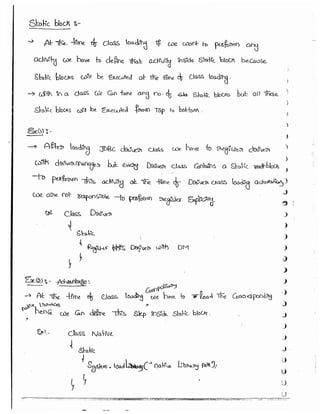 Static block :-
→ At the time of class loading if we want to perform any
activity we have to define that activity inside static block because
static blocks will be executed at the time of class loading.
→ with in a class we can take any no. of static blocks but all these
static blocks will be executed from Top to bottom.
Ex(1) :-
→ After loading JDBC driver class we have to register driver
with driver manager but every Driver class contains a static block
to perform this activity at the time of Driver class loading automatically
we are not responsible to perform register Explicitly
Ex: class Driver
{
static
{
Register this Driver with DM
}
}
Ex(2) :-
→ At the time of class loading we have to load the corresponding
native libraries
hence we can define this step inside static block.
Ex:- class Native
{
static
{
System.loadLibrary("native library path");
}
}